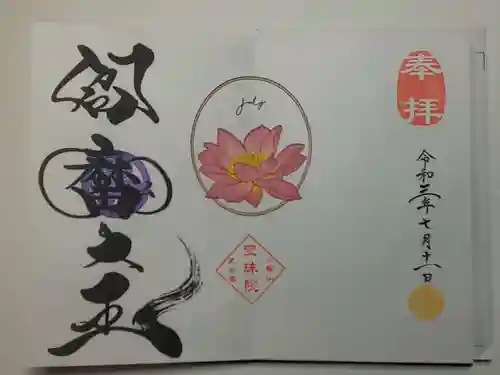 奉拝
令和三年七月十一日
July
宝珠院
閻魔大王